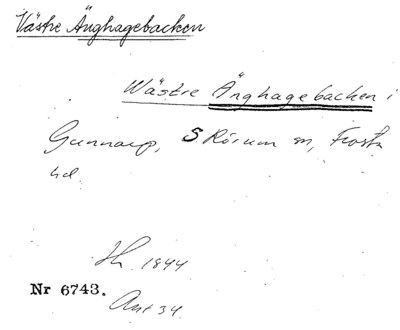 Västre Änghagebacken
Wästre Änghagebacken i
Gunnarp, S Rörum sn, Frosta
hd
Jh. 1844
Nr 6743.
Ant 34